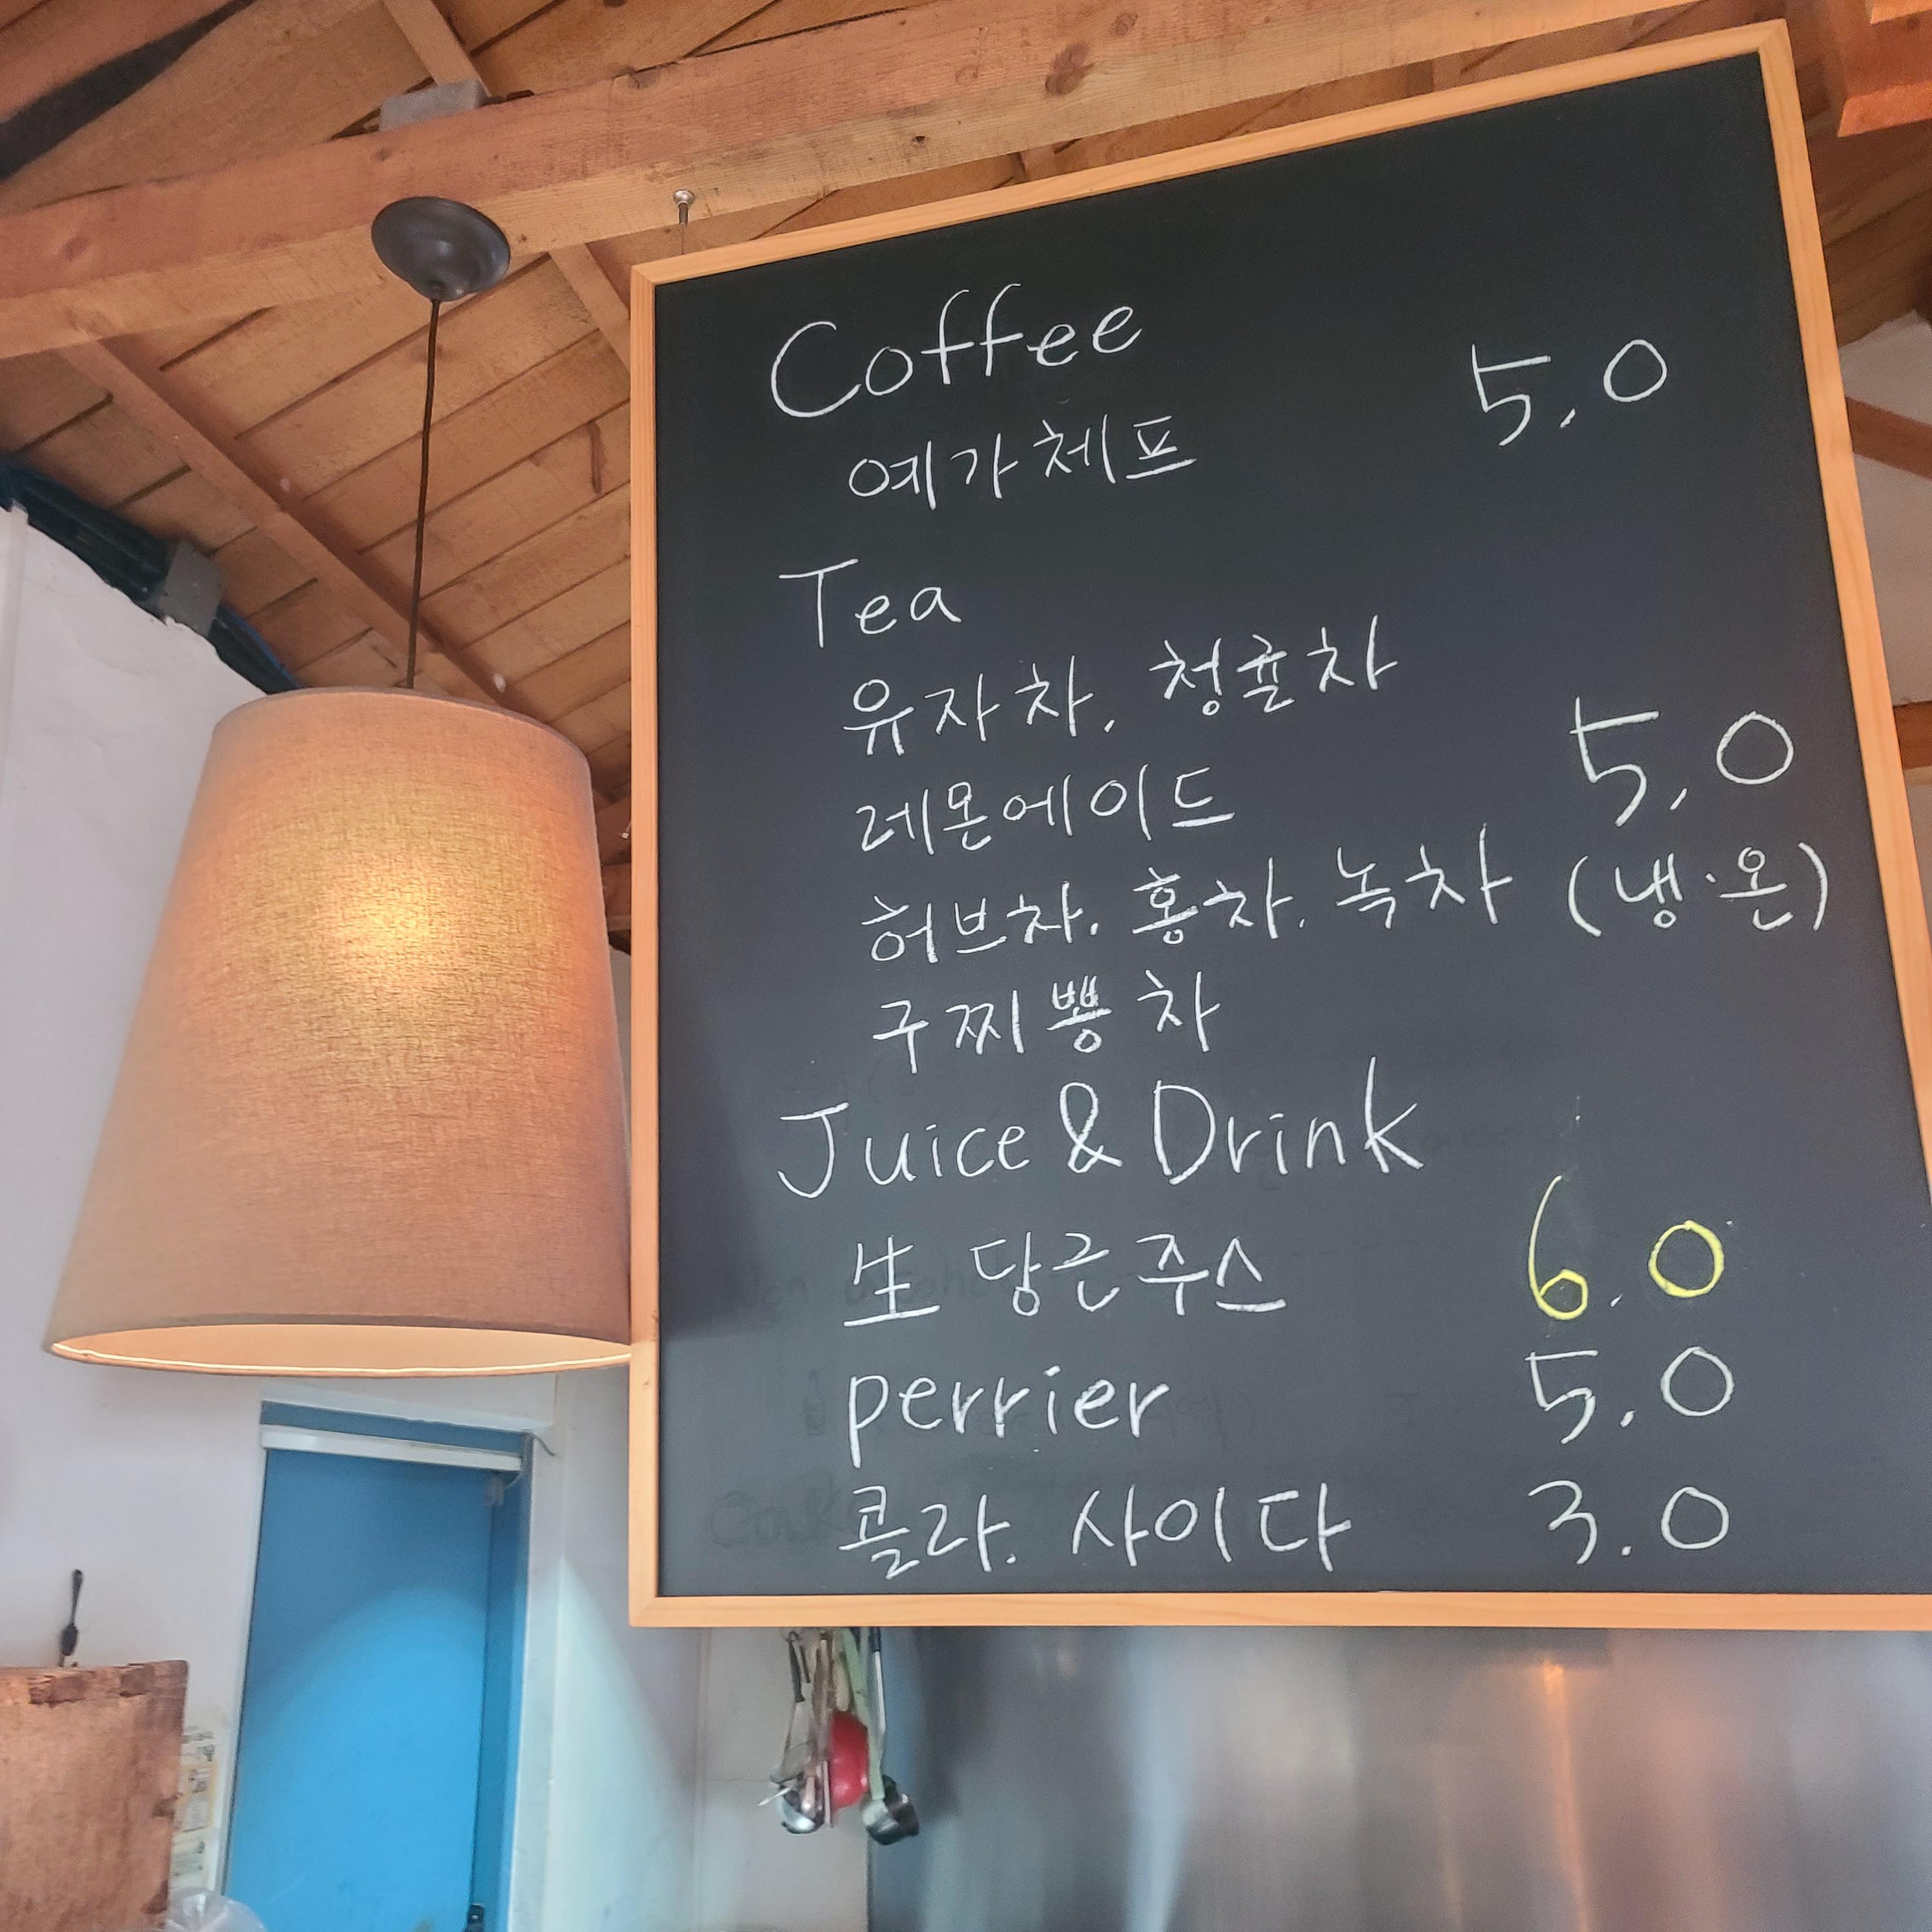 Coffee
예가체프 5,0
Tea
유자차, 청귤차
레몬에이드 5,0
허브차. 홍차. 녹차 (냉·온)
구찌뽕차
Juice & Drink
生 당근주스 6.0
perrier 5.0
콜라. 사이다 3.0